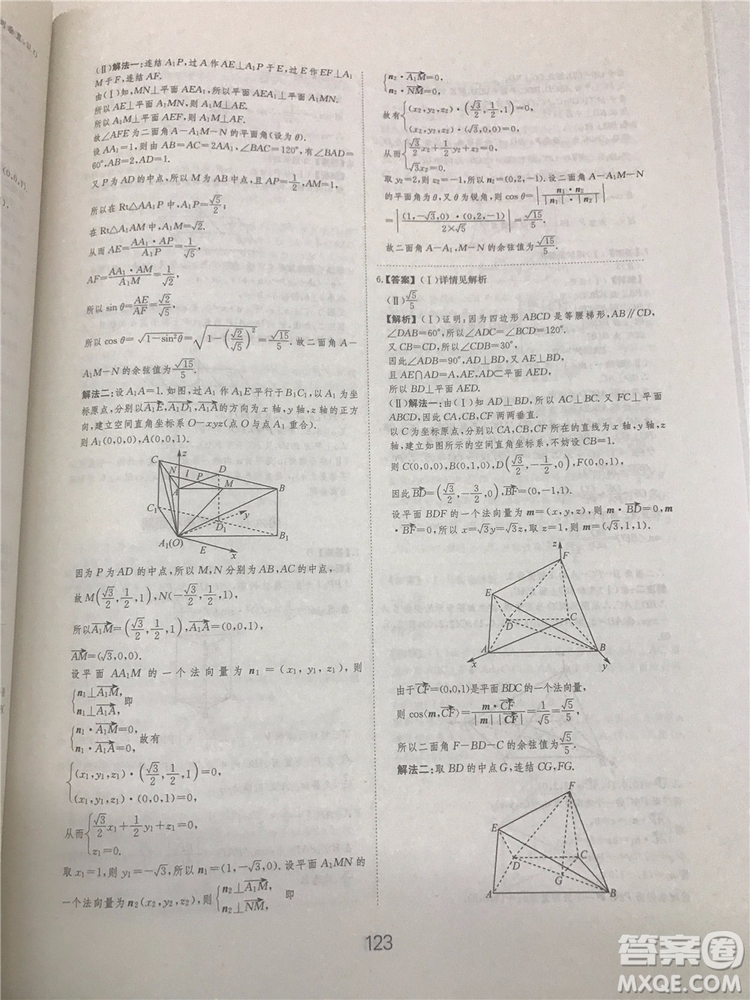 (Ⅱ)解法一:连结A₁P,过A作AE⊥A₁P于E,过E作EF⊥A₁
M于F,连结AF.
由(Ⅰ)知,MN⊥平面AEA₁,所以平面AEA₁⊥平面A₁MN.
所以AE⊥平面A₁MN,则A₁M⊥AE.
所以A₁M⊥平面AEF,则A₁M⊥AF.
故∠AFE为二面角A-A₁M-N的平面角(设为θ).
设AA₁=1,则由AB=AC=2AA₁,∠BAC=120°,有∠BAD=
60°,AB=2,AD=1.
又P为AD的中点,所以M为AB中点,且AP=1/2,AM=1,
所以在Rt△AA₁P中,A₁P=√5/2;
在Rt△A₁AM中,A₁M=√2.
从而AE=AA₁·AP/A₁P=1/√5,
AF=AA₁·AM/A₁M=1/√2,
所以sinθ=AE/AF=√2/√5.
所以cosθ=√(1-sin²θ)=√(1-(√2/√5)²)=√15/5.故二面角A-
A₁M-N的余弦值为√15/5.
解法二:设A₁A=1.如图,过A₁作A₁E平行于B₁C₁,以A₁为坐
标原点,分别以A₁E,A₁D₁,A₁A的方向为x轴,y轴,z轴的正方
向,建立空间直角坐标系O-xyz(点O与点A₁重合).
则A₁(0,0,0),A(0,0,1).
z
C
N
P
D
A
M
B
C₁
y
D₁
A₁(O)
E
x
B₁
因为P为AD的中点,所以M,N分别为AB,AC的中点,
故M(√3/2,1/2,1),N(-√3/2,1/2,1),
所以A₁M=(√3/2,1/2,1),A₁A=(0,0,1),
NM=(√3,0,0).
设平面AA₁M的一个法向量为n₁=(x₁,y₁,z₁),则
{n₁⊥A₁M,
n₁⊥A₁A, 即
{n₁·A₁M=0,
n₁·A₁A=0, 故有
{(x₁,y₁,z₁)·(√3/2,1/2,1)=0,
(x₁,y₁,z₁)·(0,0,1)=0,
从而{√3/2x₁+1/2y₁+z₁=0,
z₁=0.
取x₁=1,则y₁=-√3,所以n₁=(1,-√3,0).设平面A₁MN的
一个法向量为n₂(x₂,y₂,z₂),则{n₂⊥A₁M,
n₂⊥NM, 即
{n₂·A₁M=0,
n₂·NM=0,
故有{(x₂,y₂,z₂)·(√3/2,1/2,1)=0,
(x₂,y₂,z₂)·(√3,0,0)=0,
从而{√3/2x₂+1/2y₂+z₂=0,
√3x₂=0.
取y₂=2,则z₂=-1,所以n₂=(0,2,-1).设二面角A-A₁M-N
的平面角为θ,又θ为锐角,则cosθ=|n₁·n₂/|n₁|·|n₂||
=|(1,-√3,0)·(0,2,-1)/2×√5|=√15/5.
故二面角A-A₁M-N的余弦值为√15/5.
6.【答案】(Ⅰ)详情见解析
(Ⅱ)√5/5
【解析】(Ⅰ)证明:因为四边形ABCD是等腰梯形,AB∥CD,
∠DAB=60°,所以∠ADC=∠BCD=120°.
又CB=CD,所以∠CDB=30°.
因此∠ADB=90°,AD⊥BD,又AE⊥BD,
且AE∩AD=A,AE,AD⊂平面AED,
所以BD⊥平面AED.
(Ⅱ)解法一:由(Ⅰ)知AD⊥BD,所以AC⊥BC.又FC⊥平面
ABCD,因此CA,CB,CF两两垂直.
以C为坐标原点,分别以CA,CB,CF所在的直线为x轴,y
轴,z轴,建立如图所示的空间直角坐标系,不妨设CB=1.
则C(0,0,0),B(0,1,0),D(√3/2,-1/2,0),F(0,0,1),
因此BD=(√3/2,-3/2,0),BF=(0,-1,1).
设平面BDF的一个法向量为m=(x,y,z),则m·BD=0,m·
BF=0,所以x=√3y=√3z,取z=1,则m=(√3,1,1).
z
F
E
D
C
A
B
x
y
由于CF=(0,0,1)是平面BDC的一个法向量,
则cos⟨m,CF⟩=m·CF/|m||CF|=1/√5=√5/5,
所以二面角F-BD-C的余弦值为√5/5.
解法二:取BD的中点G,连结CG,FG.
F
E
D
C
G
A
B
123
答案圈
MXQE.COM